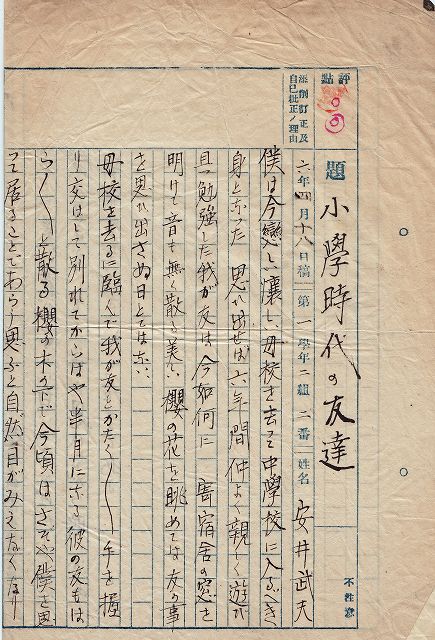 評點
添削訂正及
自己批正ノ理由
題 小學時代の友達
六年四月十八日稿 第一學年二組二番 姓名 安井武夫
不注意
僕は今戀しい懷しい母校を去って中學校に入るべき
身となった 思ひ出せば六年間仲よく親しく遊び
且勉強した我が友は今如何に 寄宿舍の窓を
明けて音も無く散る美しい櫻の花を眺めては友の事
を思ひ出さぬ日とてはない
母校を去るに臨んで我が友とかたく〱手を握
り交はして別れてからはや半月になる彼の友もは
ら〱と散る櫻の木の下で今頃はさぞや僕を思
って居ることであらう 思ふと自然目がみえなくなり